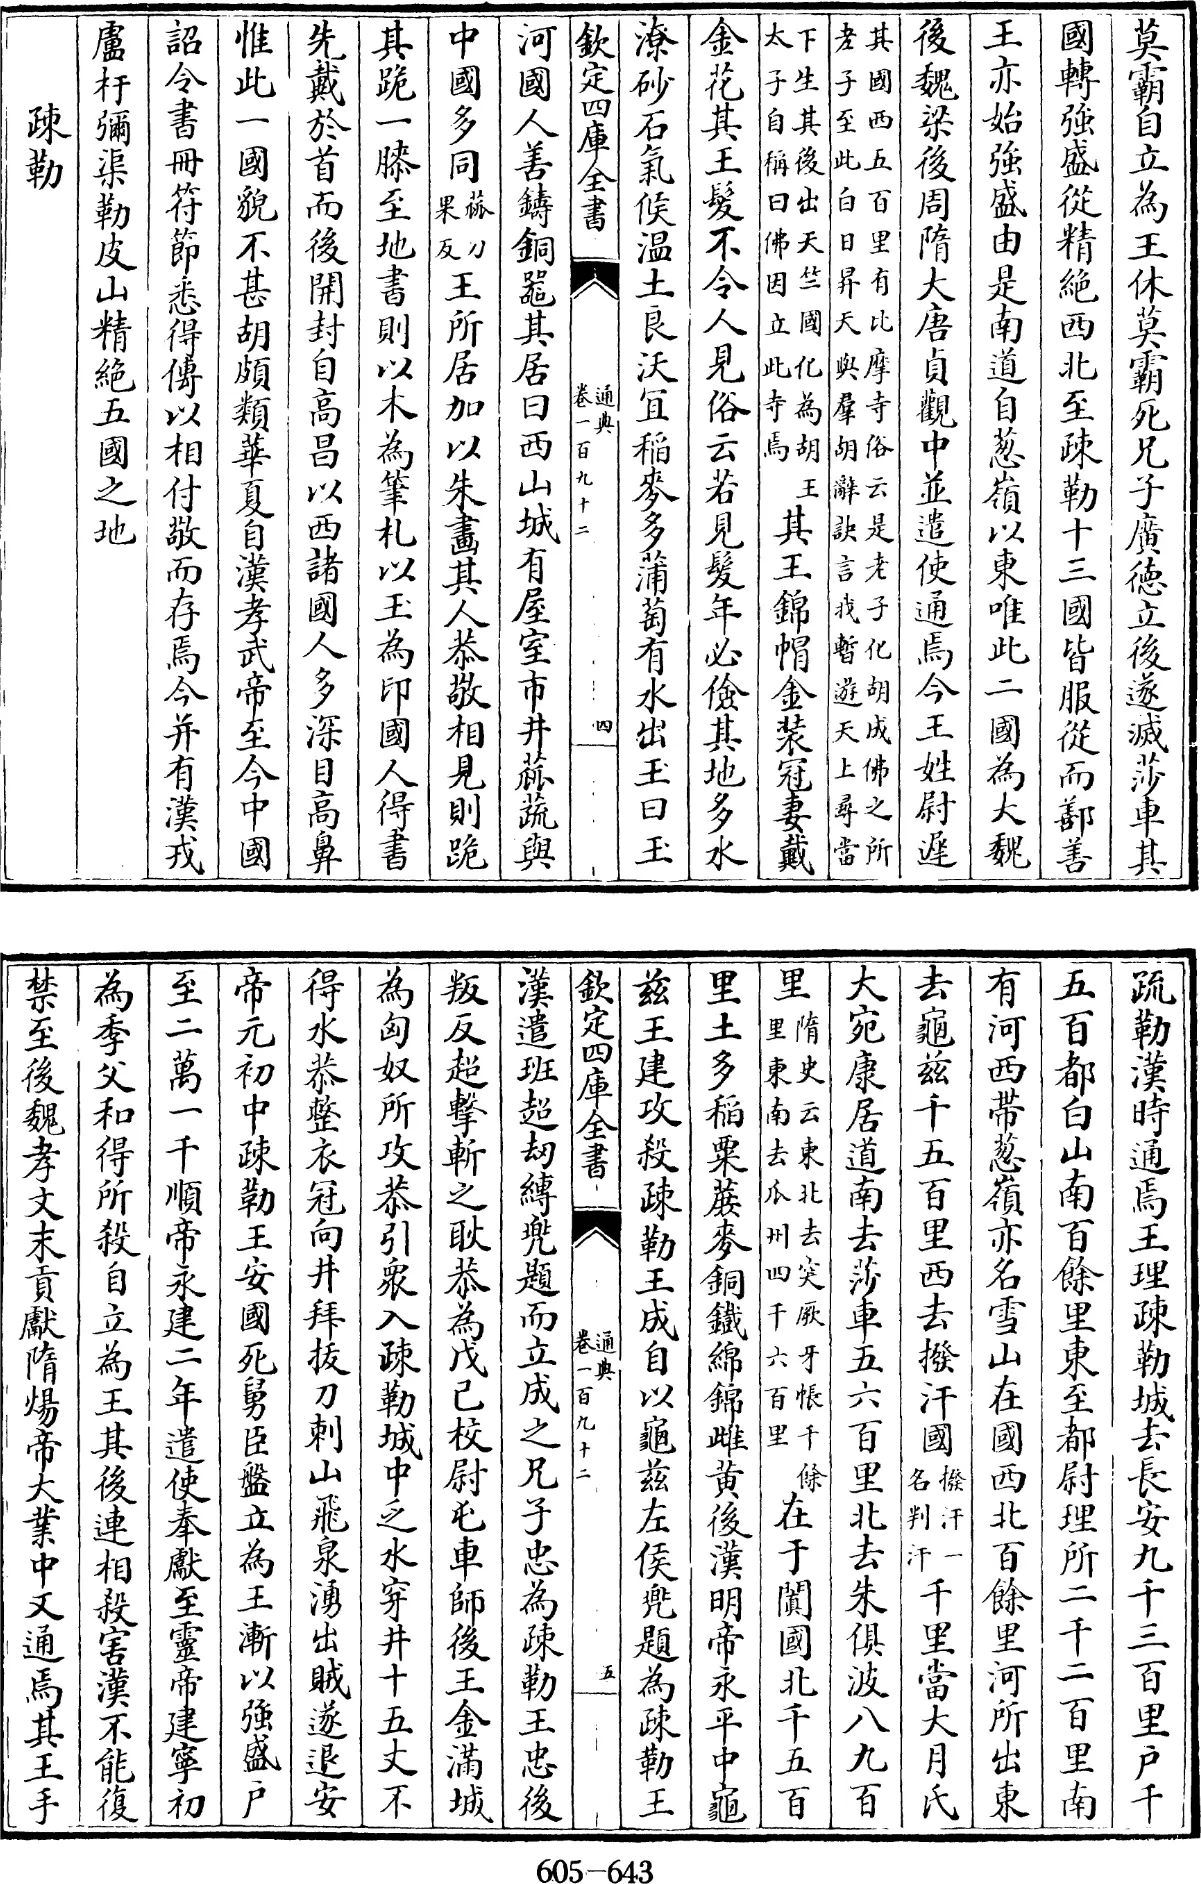 莫霸自立為王休莫霸死兄子廣徳立後遂滅莎車其
國轉強盛從精絶西北至疎勒十三國皆服從而鄯善
王亦始強盛由是南道自葱嶺以東唯此二國為大魏
後魏梁後周隋大唐貞觀中並遣使通焉今王姓尉遲
其國西五百里有比摩寺俗云是老子化胡成佛之所
老子至此白日昇天與羣胡辭訣言我暫遊天上尋當
下生其後出天竺國化為胡王
太子自稱曰佛因立此寺焉
其王錦帽金装冠妻戴
金花其王髮不令人見俗云若見髮年必儉其地多水
潦砂石氣候温土良沃宜稻麥多蒲萄有水出玉曰玉
欽定四庫全書
通典
卷一百九十二
四
河國人善鑄銅噐其居曰西山城有屋室市井蓏蔬與
中國多同
蓏刀
果反
王所居加以朱畫其人恭敬相見則跪
其跪一膝至地書則以木為筆札以玉為印國人得書
先戴於首而後開封自高昌以西諸國人多深目高鼻
惟此一國貌不甚胡頗類華夏自漢孝武帝至今中國
詔令書冊符節悉得傳以相付敬而存焉今并有漢戎
盧杅彌渠勒皮山精絶五國之地
疎勒
疏勒漢時通焉王理疎勒城去長安九千三百里户千
五百都白山南百餘里東至都尉理所二千二百里南
有河西帶葱嶺亦名雪山在國西北百餘里河所出東
去龜兹千五百里西去撥汗國
撥汗一
名判汗
千里當大月氏
大宛康居道南去莎車五六百里北去朱俱波八九百
里
隋史云東北去突厥牙帳千餘
里東南去瓜州四千六百里
在于闐國北千五百
里土多稻粟蔴麥銅鐵綿錦雌黄後漢明帝永平中龜
兹王建攻殺疎勒王成自以龜兹左侯兠題為疎勒王
欽定四庫全書
通典
卷一百九十二
五
漢遣班超刼縛兠題而立成之兄子忠為疎勒王忠後
叛反超擊斬之耿恭為戊已校尉屯車師後王金滿城
為匈奴所攻恭引衆入疎勒城中乏水穿井十五丈不
得水恭整衣冠向井拜拔刀刺山飛泉湧出賊遂退安
帝元初中疎勒王安國死舅臣盤立為王漸以強盛户
至二萬一千順帝永建二年遣使奉獻至靈帝建寧初
為季父和得所殺自立為王其後連相殺害漢不能復
禁至後魏孝文末貢獻隋煬帝大業中又通焉其王手
605-643